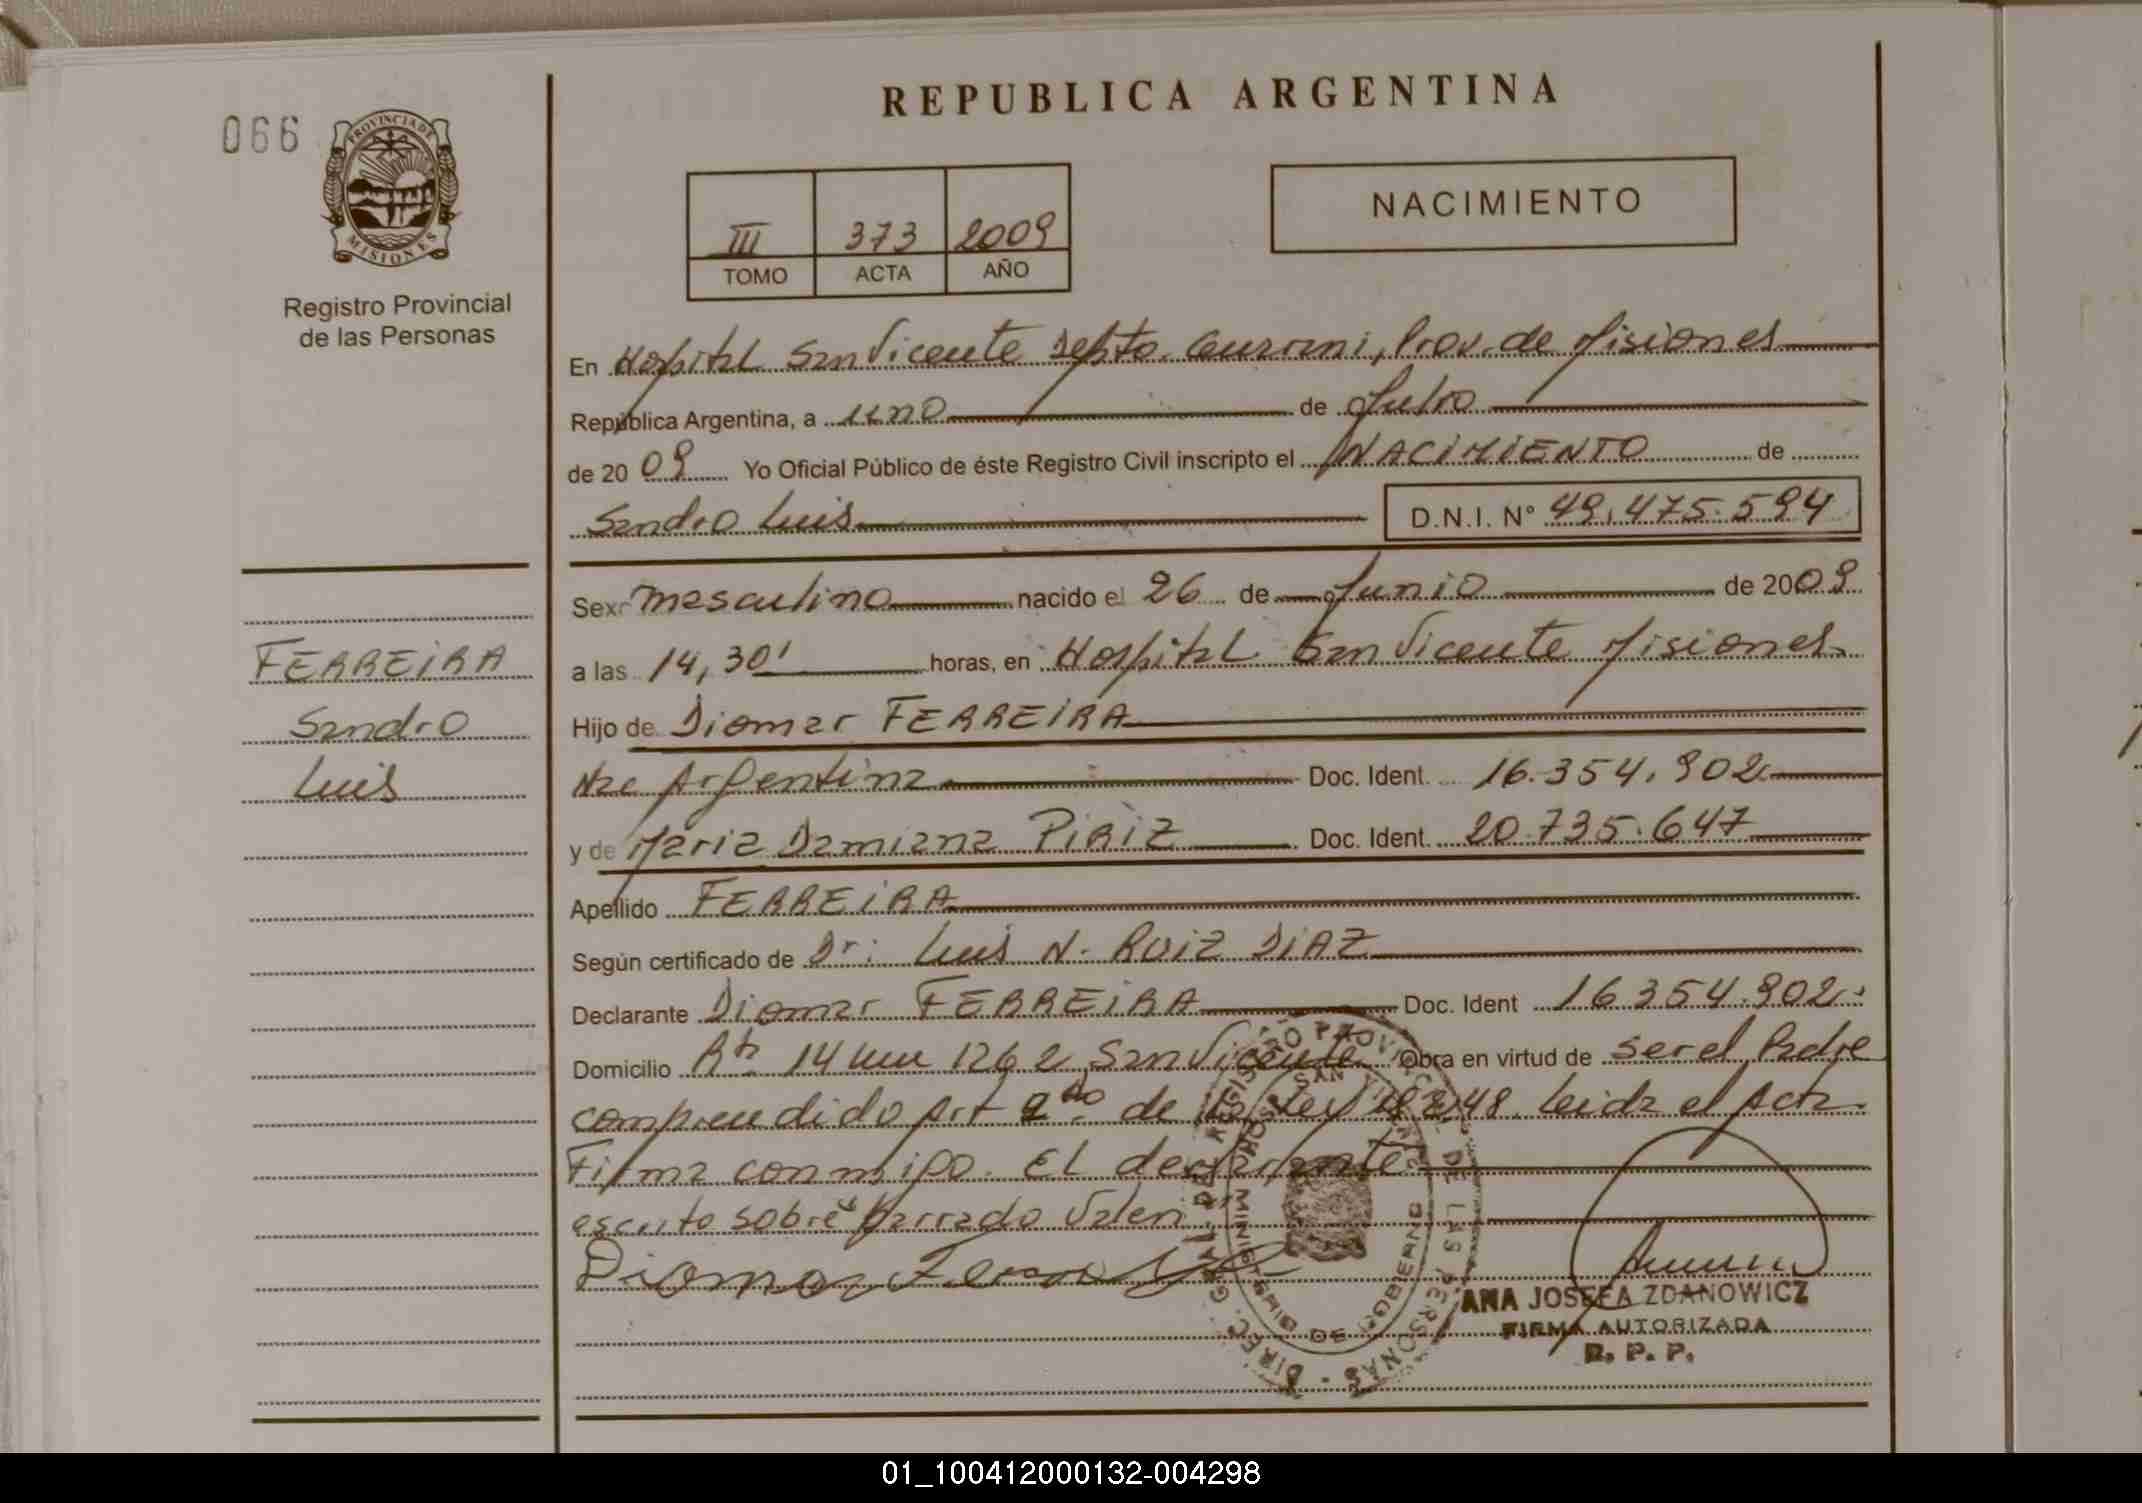 REPUBLICA ARGENTINA
066
PROVINCIA DE
MISIONES
Registro Provincial
de las Personas
III 373 2009
TOMO ACTA AÑO
NACIMIENTO
En Hospital San Vicente Depto. Guarani, Prov. de Misiones
República Argentina, a uno de Julio
de 2009 Yo Oficial Público de éste Registro Civil inscripto el NACIMIENTO de
Sandro Luis D.N.I. N° 49.475.594
Sexo masculino nacido el 26 de Junio de 2009
a las 14,30' horas, en Hospital San Vicente Misiones
FERREIRA
Sandro
Luis
Hijo de Diomar FERREIRA
Nac Argentina Doc. Ident. 16.354.902
y de Maria Damiana PIRIZ Doc. Ident. 20.735.647
Apellido FERREIRA
Según certificado de Dr: Luis N. RUIZ DIAZ
Declarante Diomar FERREIRA Doc. Ident 16354.902
Domicilio Rta 14 km 1262 San Vicente Obra en virtud de ser el Padre
comprendido Art 2do de la Ley 18248. Leida el Acta
Firma conmigo. El declarante
escrito sobre "Barrado Valen
Diomar Ferreira
REGISTRO PROVINCIAL DE LAS PERSONAS
DIREC. GRAL. DEL
SAN VICENTE
MINISTERIO DE GOBIERNO
ANA JOSEFA ZDANOWICZ
FIRMA AUTORIZADA
R. P. P.
01_100412000132-004298